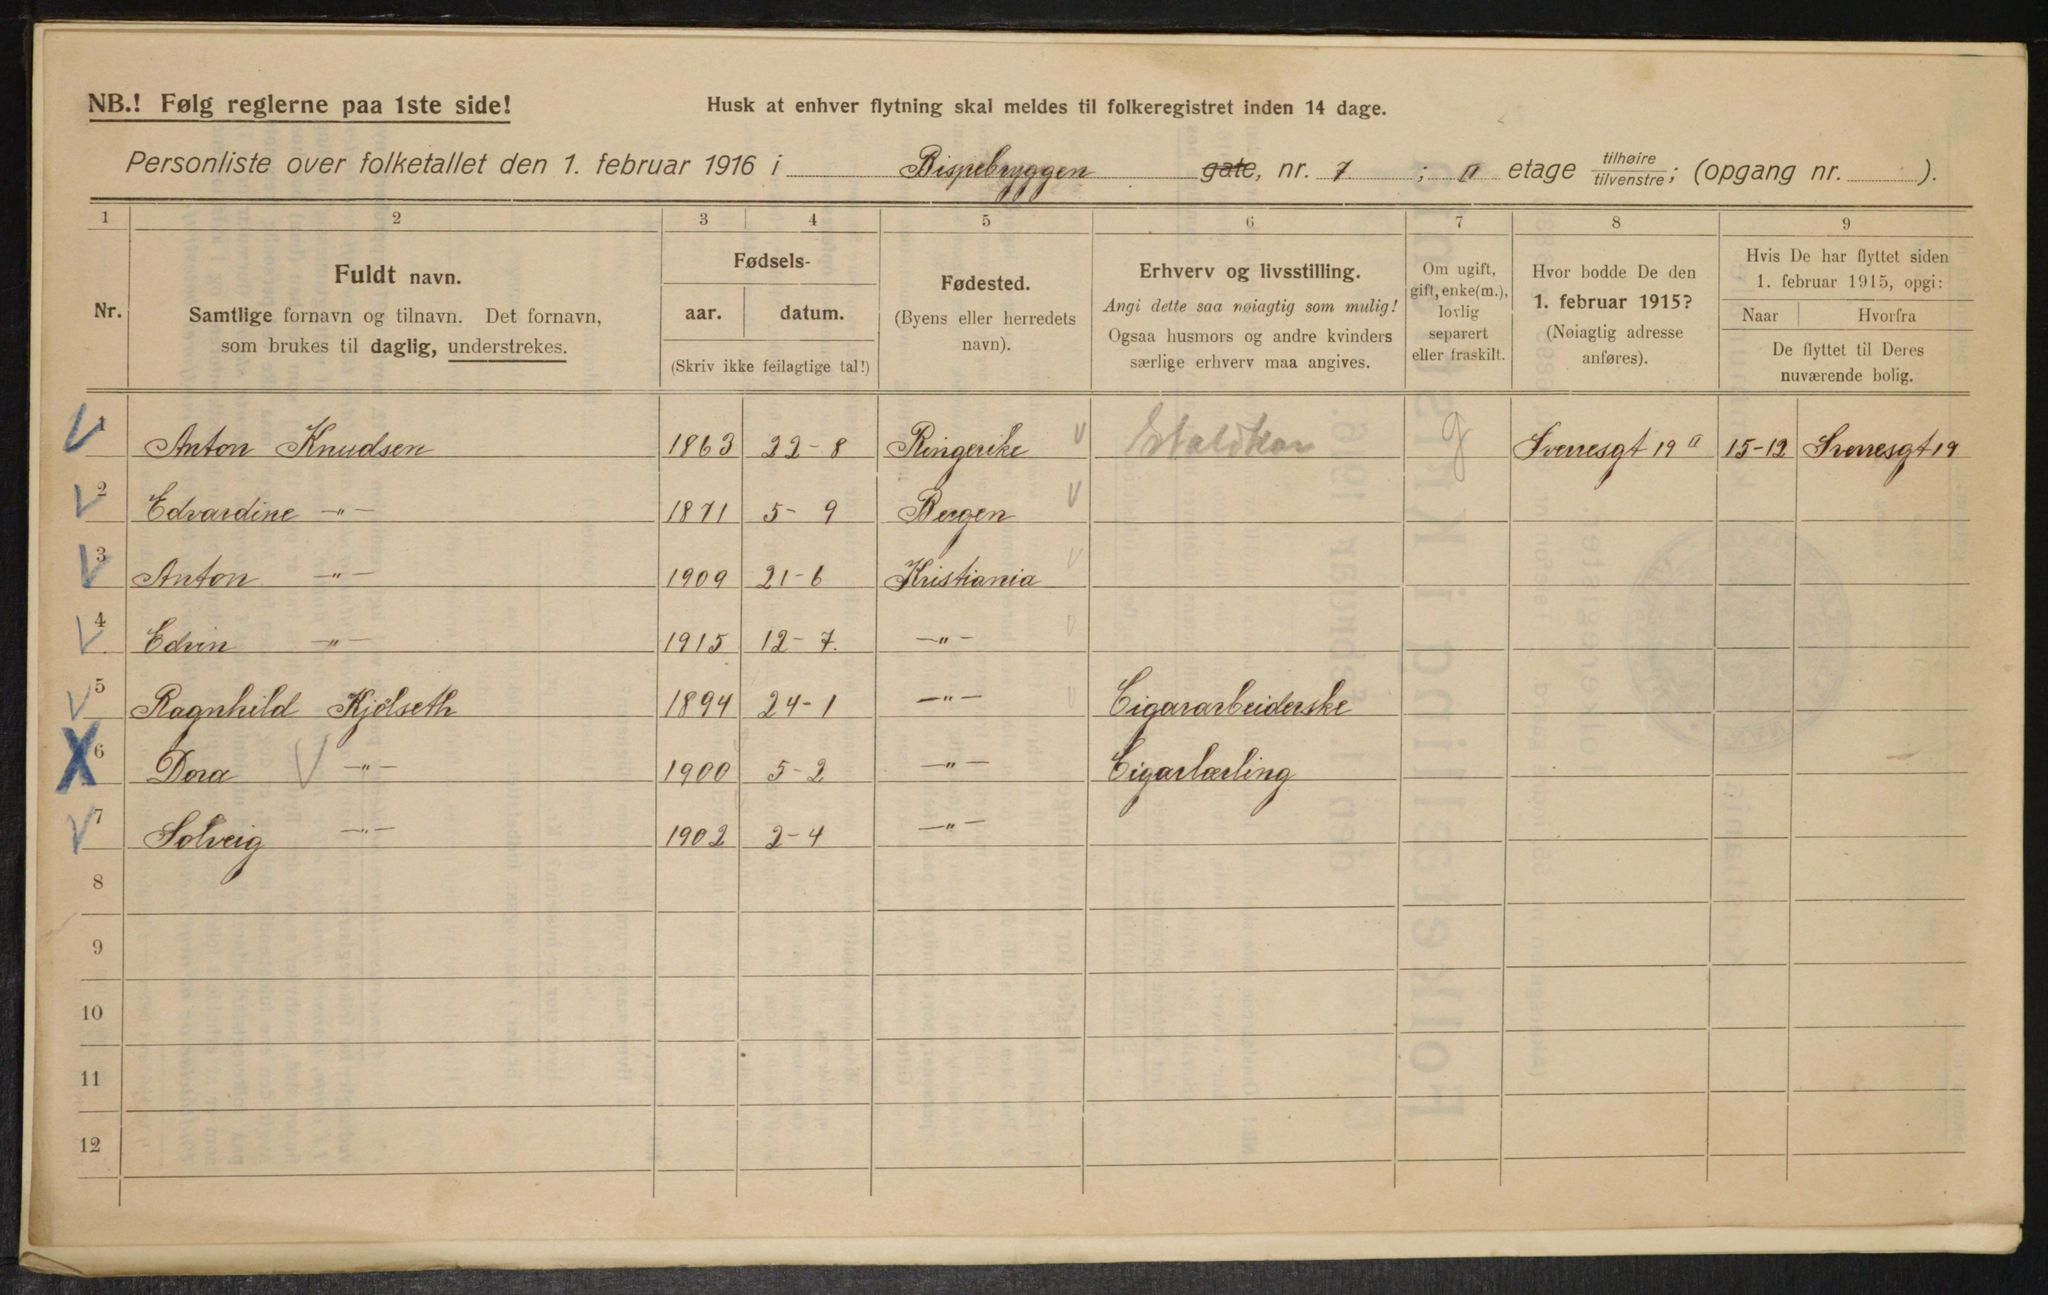 NB.! Følg reglerne paa 1ste side!
Husk at enhver flytning skal meldes til folkeregistret inden 14 dage.
Personliste over folketallet den 1. februar 1916 i Bispebryggen gate, nr. 7 ; II etage tilhøire/tilvenstre; (opgang nr. ).
1 2 3 4 5 6 7 8 9
Nr.
Fuldt navn.
Samtlige fornavn og tilnavn. Det fornavn,
som brukes til daglig, understrekes.
Fødsels-
aar. datum.
(Skriv ikke feilagtige tal!)
Fødested.
(Byens eller herredets
navn).
Erhverv og livsstilling.
Angi dette saa nøiagtig som mulig!
Ogsaa husmors og andre kvinders
særlige erhverv maa angives.
Om ugift,
gift, enke(m.),
lovlig
separert
eller fraskilt.
Hvor bodde De den
1. februar 1915?
(Nøiagtig adresse
anføres).
Hvis De har flyttet siden
1. februar 1915, opgi:
Naar Hvorfra
De flyttet til Deres
nuværende bolig.
1 Anton Knudsen 1863 22-8 Ringerike g Sverresgt 19 II 15-12 Sverresgt 19
2 Edvardine -"- 1871 5-9 Bergen
3 Anton -"- 1909 21-6 Kristiania
4 Edvin -"- 1915 12-7. -"-
5 Ragnhild Kjölseth 1894 24-1 -"- Cigararbeiderske
6 Dora -"- 1900 5-2 -"- Cigarlærling
7 Solveig -"- 1902 2-4 -"-
8
9
10
11
12